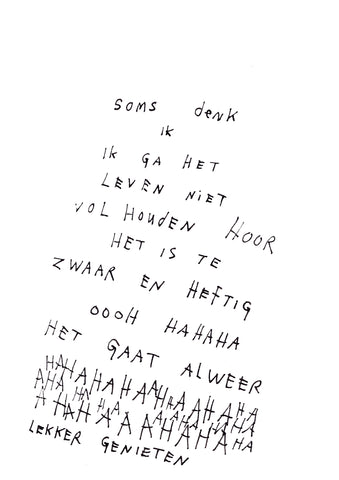 SOMS denk
ik
ik GA HET
LEVEN NiET
VOL HOUDEN HOOR
HET IS TE
ZWAAR EN HEFTIG
OOOH HAHAHA
HET GAAT ALWEER
LEKKER GENIETEN